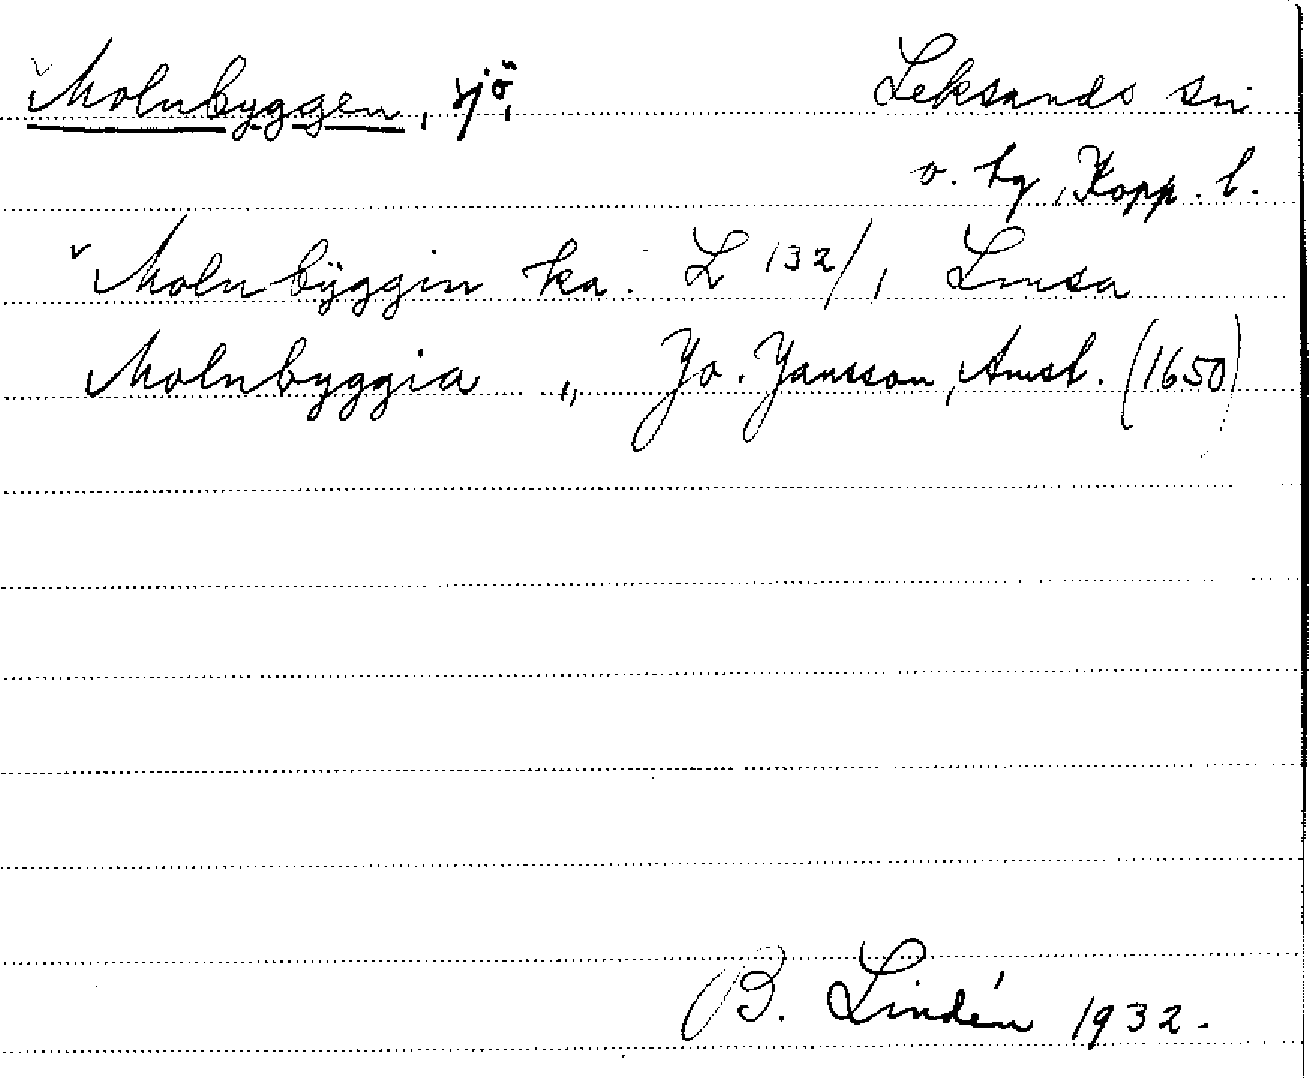 Molnbyggen, sjö, Leksands sn
o. hg, Kopp. l.
Molnbÿggin ka. L 132/1 Lmsa
Molnbyggia „ Jo. Jansson, Amst. (1650)
B. Lindén 1932.